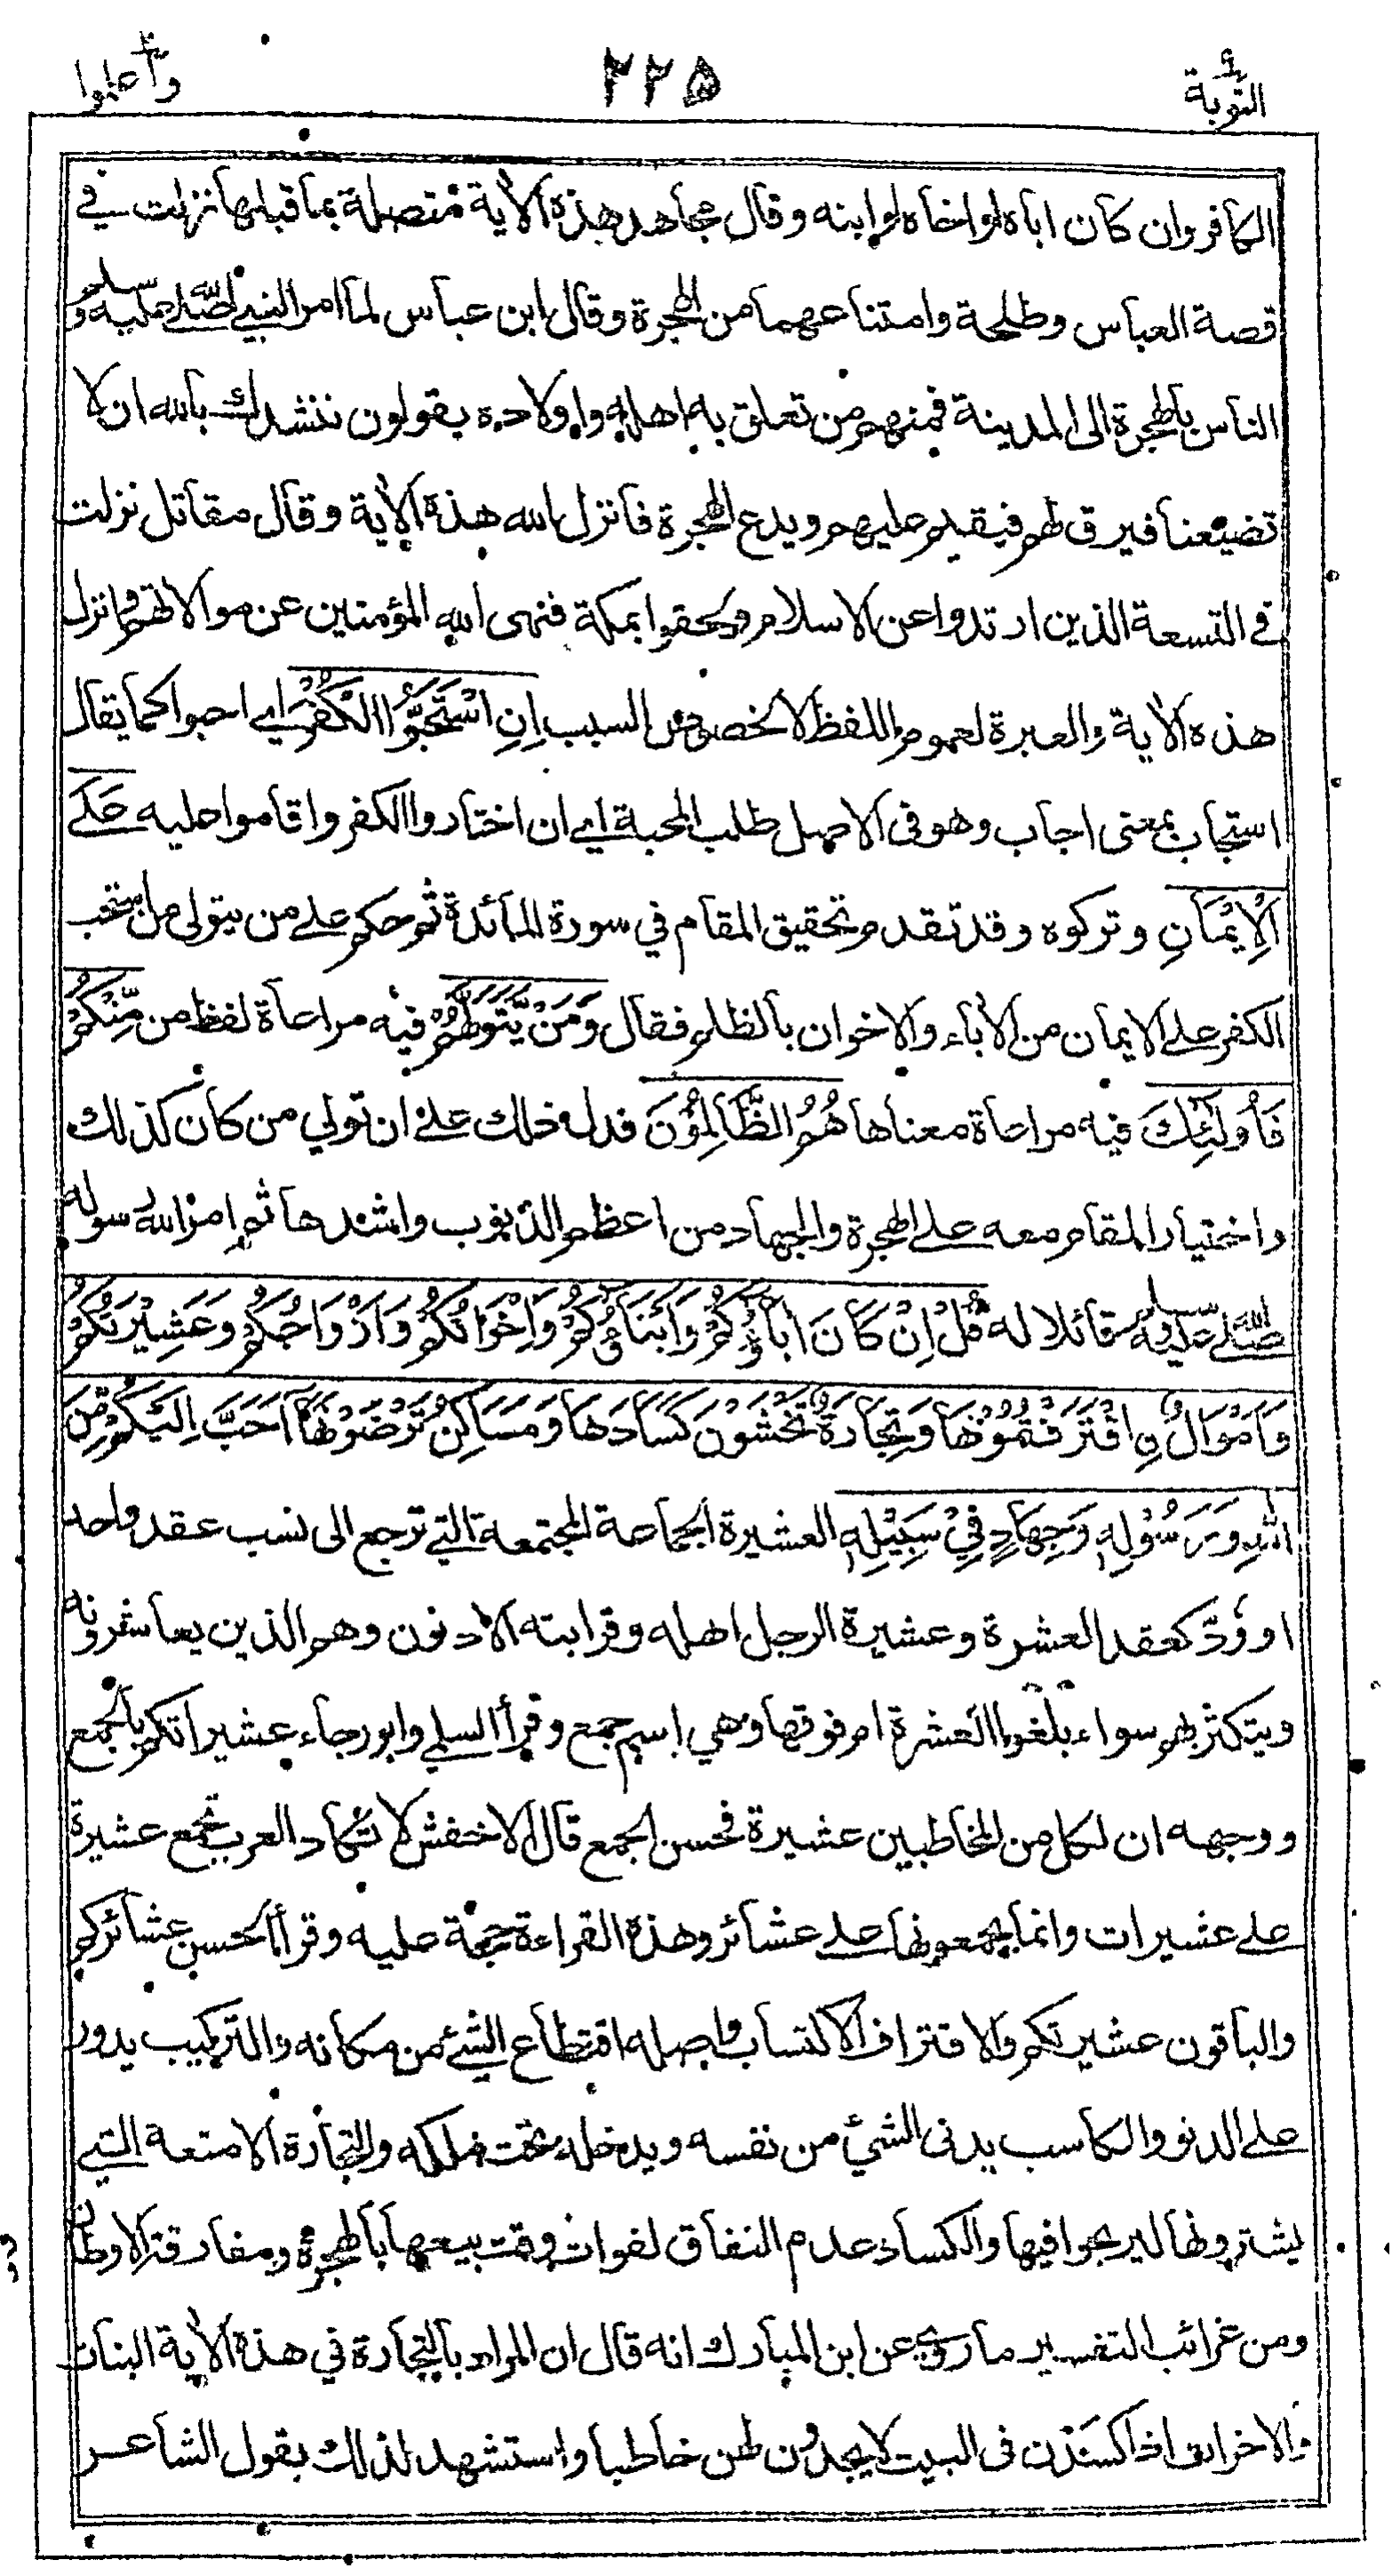 التوبة ٩
٢٢٥
واعلموا ١٠
الكافر وان كان اباه او اخاه او ابنه وقال مجاهد هذه الأية متصلة بما قبلها نزلت في
قصة العباس وطلحة وامتناعهما من الهجرة وقال ابن عباس لما امر النبي صلى الله عليه وسلم
الناس بالهجرة الى المدينة فمنهم من تعلق به اهله واولاده يقولون ننشدك بالله ان لا
تضيعنا فيرق لهم فيقيم عليهم ويدع الهجرة فانزل الله هذه الأية وقال مقاتل نزلت
في التسعة الذين ارتدوا عن الاسلام ولحقوا بمكة فنهى الله المؤمنين عن موالاتهم وانزل
هذه الأية والعبرة لعموم اللفظ لا لخصوص السبب اِنِ اسْتَحَبُّوا الْكُفْرَ اي احبوا كما يقال
استجاب بمعنى اجاب وهو في الاصل طلب المحبة اي ان اختاروا الكفر واقاموا عليه عَلَى
الْاِيْمَانِ وتركوه وقد تقدم تحقيق المقام في سورة المائدة ثم حكم على من يتولى من استحب
الكفر على الايمان من الأباء والاخوان بالظلم فقال وَمَنْ يَّتَوَلَّهُمْ فيه مراعاة لفظ من مِّنْكُمْ
فَاُولٰٓئِكَ فيه مراعاة معناها هُمُ الظَّالِمُوْنَ فدل ذلك على ان تولي من كان كذلك
واختيار المقام معه على الهجرة والجهاد من اعظم الذنوب واشدها ثم امر الله رسوله
صلى الله عليه وسلم قائلا له قُلْ اِنْ كَانَ اٰبَآؤُكُمْ وَاَبْنَآؤُكُمْ وَاِخْوَانُكُمْ وَاَزْوَاجُكُمْ وَعَشِيْرَتُكُمْ
وَاَمْوَالُ نِ اقْتَرَفْتُمُوْهَا وَتِجَارَةٌ تَخْشَوْنَ كَسَادَهَا وَمَسَاكِنُ تَرْضَوْنَهَآ اَحَبَّ اِلَيْكُمْ مِّنَ
اللهِ وَرَسُوْلِهٖ وَجِهَادٍ فِيْ سَبِيْلِهٖ العشيرة الجماعة المجتمعة التي ترجع الى نسب عقد واحد
او وُدّ كعقد العشرة وعشيرة الرجل اهله وقرابته الادنون وهم الذين يعاشرونه
ويتكثر بهم سواء بلغوا العشرة ام فوقها وهي اسم جمع وقرأ السلمي وابو رجاء عشيراتكم بالجمع
ووجهه ان لكل من المخاطبين عشيرة فحسن الجمع قال الاخفش لا تكاد العرب تجمع عشيرة
على عشيرات وانما يجمعونها على عشائر وهذه القراءة حجة عليه وقرأ الحسن عشائركم
والباقون عشيرتكم والاقتراف الاكتساب واصله اقتطاع الشئ من مكانه والتركيب يدور
على الدنو والكاسب يدني الشئ من نفسه ويدخله تحت ملكه والتجارة الامتعة التي
يشترونها ليربحوا فيها والكساد عدم النفاق لفوات وقت بيعها بالهجرة ومفارقة الاوطان
ومن غرائب التفسير ما روي عن ابن المبارك انه قال ان المراد بالتجارة في هذه الأية البنات
والاخوات اذا كسَدْن في البيت لا يجدون لهن خاطبا واستشهد لذلك بقول الشاعر